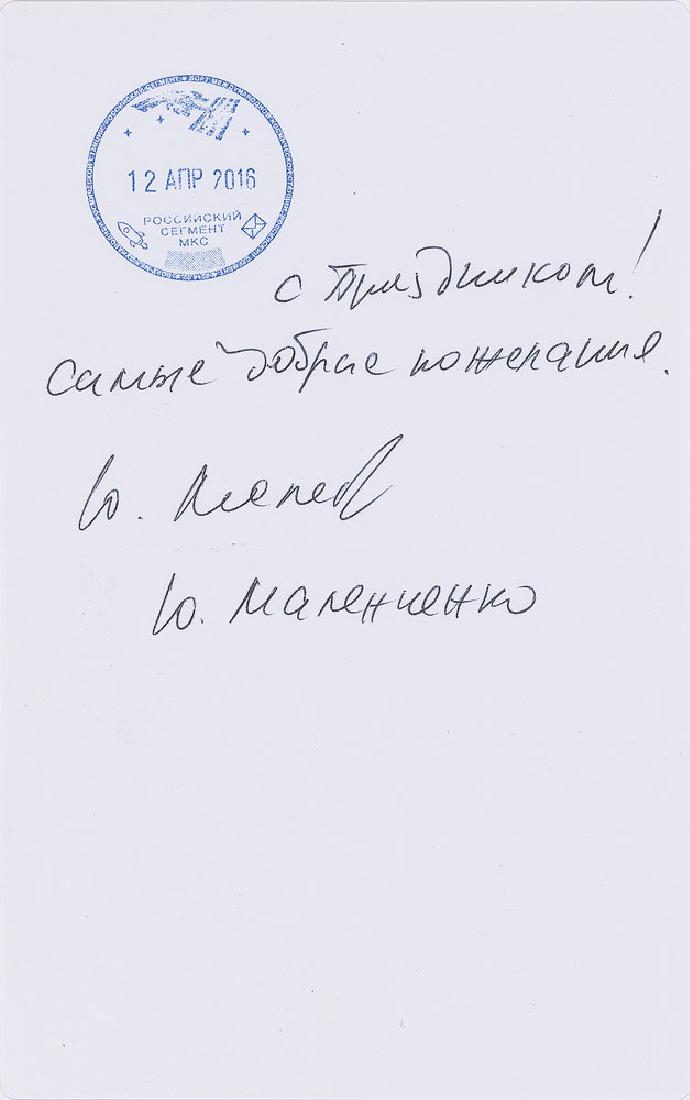 12 АПР 2016
РОССИЙСКИЙ
СЕГМЕНТ
МКС
с Праздником!
Самые добрые пожелания.
Ю. Мален
Ю. Маленченко